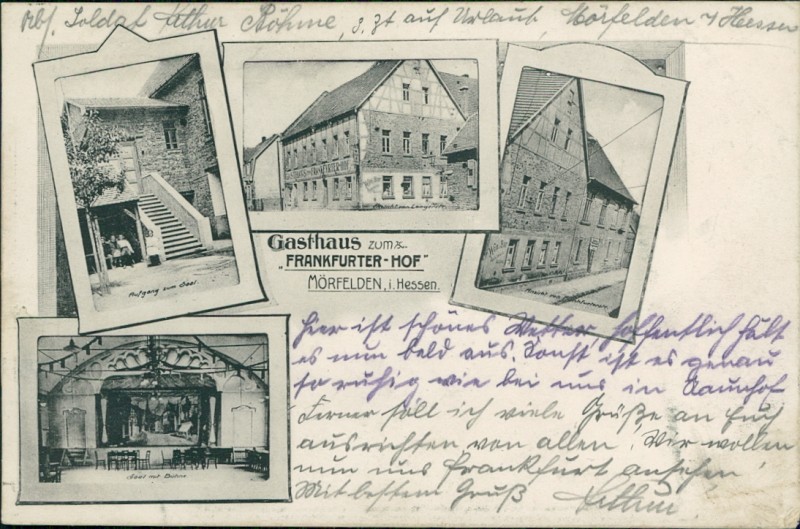 Abs. Soldat Arthur Böhme, z. Zt auf Urlaub, Mörfelden i/Hessen
FRANKFURTER-HOF
Aufgang zum Saal.
Gasthaus ZUM
"FRANKFURTER-HOF"
MÖRFELDEN, i. Hessen.
Saal mit Bühne
Hier ist schönes Wetter, hoffentlich hält
es nun bald aus. Sonst ist es genau
so ruhig wie bei uns in Naunhof
Ferner soll ich viele Grüße an Euch
ausrichten von allen. Wir wollen
nun uns Frankfurt ansehen.
Mit bestem Gruß Arthur.